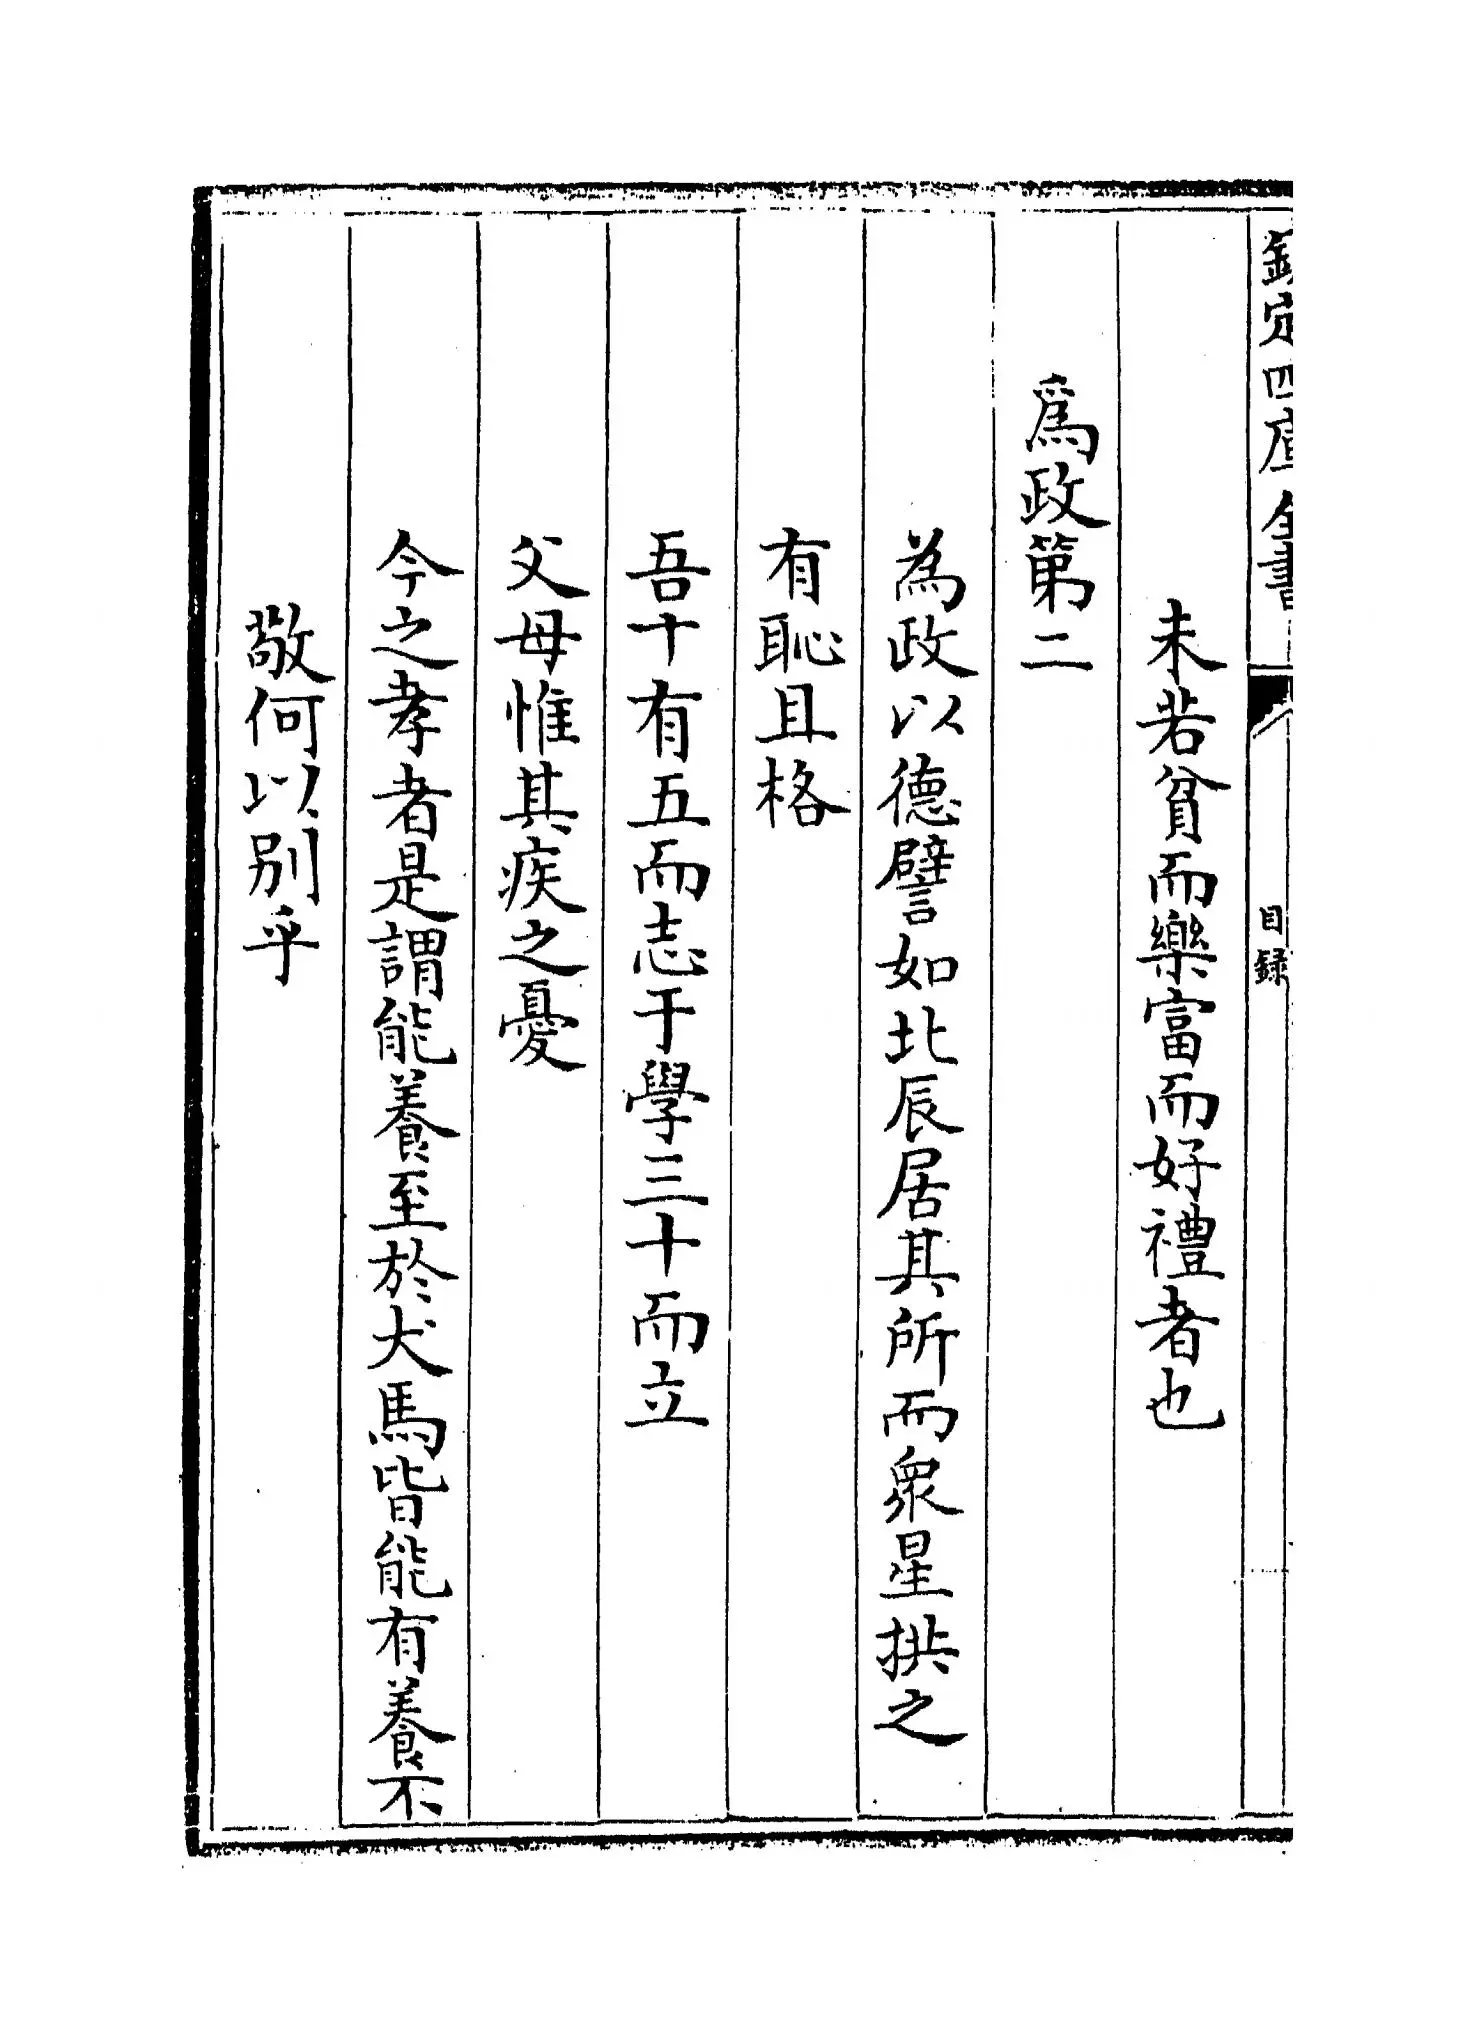 欽定四庫全書
目録
未若貧而樂富而好禮者也
爲政第二
為政以德譬如北辰居其所而衆星拱之
有恥且格
吾十有五而志于學三十而立
父母惟其疾之憂
今之孝者是謂能養至於犬馬皆能有養不
敬何以别乎